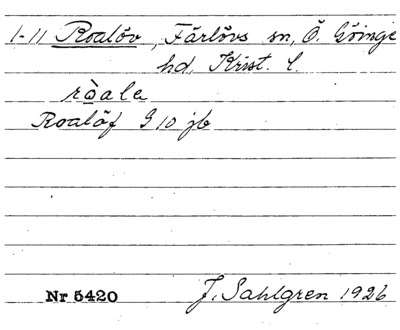 1-11 Roalöv, Färlövs sn, Ö. Göinge
hd, Krist. l.
ròale
Roalöf G 10 jb
Nr 5420 J. Sahlgren 1926